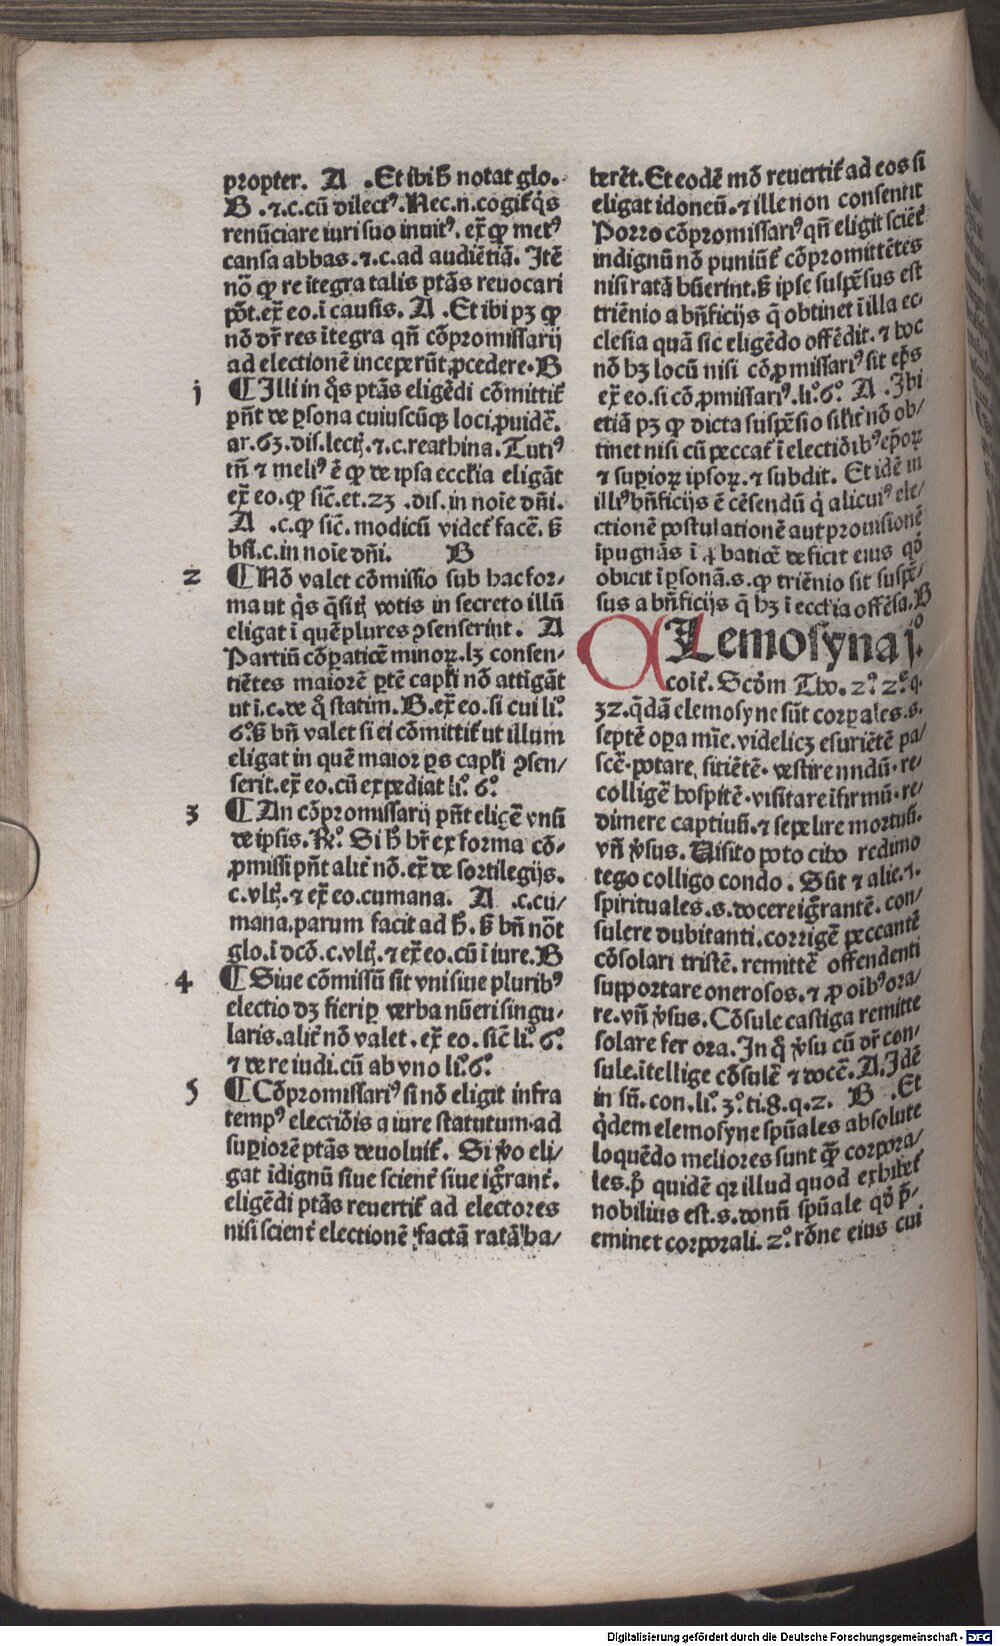 propter. A .Et ibi hͦ notat glo.
B .⁊.c.cū dilectꝰ.Nec.n.cogit᷑ q̇s
renūciare iuri suo inuitꝰ. ex̄ ꝙ metꝰ
causa abbas.⁊.c.ad audiētiā. Itē
nō ꝙ re ītegra talis ptās reuocari
pōt.ex̄ eo.ī causis. A .Et ibi pꝫ ꝙ
nō dr̄ res ītegra qn̄ cōpromissarij
ad electionē inceperūt ꝓcedere.B
1 ¶ Illi in q̇s ptās eligēdi cōmittit᷑
pn̄t de ꝑsona cuiuscūqꝫ loci ꝓuidē.
ar.63.dis.lectꝭ.⁊.c.reathina.Tutiꝰ
tn̄ ⁊ meliꝰ ē ꝙ de ipsa eccl̄ia eligāt
ex̄ eo.ꝙ sic̄.et.23 .dis.in noīe dn̄i.
A .c.ꝙ sic̄. modicū videt᷑ facē. sꝫ
bn̄.c.in noīe dn̄i. B
2 ¶ Nō valet cōmissio sub hac for⸗
ma ut q̇s q̄sitꝭ votis in secreto illū
eligat ī quē plures ꝯsenserint. A
Partiū cōꝑaticē minoꝝ.lꝫ consen⸗
tiētes maiorē ꝑtē capl̄i nō attigāt
ut ī.c.de q̇ statim.B.ex̄ eo.si cui li.º
6.º sꝫ bn̄ valet si ei cōmittit᷑ ut illum
eligat in quē maior ꝑs capl̄i ꝯsen/
serit.ex̄ eo.cū expediat li.º 6.º
3 ¶ An cōpromissarij pn̄t eligē vnū
de ipsis. ℞.º Si hͦ hr̄ ex forma cō⸗
ꝓmissi pn̄t alit̄ nō.ex̄ de sortilegijs.
c.vltꝭ.⁊ ex̄ eo.cumana. A .c.cu/
mana.parum facit ad hͦ. sꝫ bn̄ nōt
glo.ī dcō.c.vltꝭ.⁊ ex̄ eo.cū ī iure.B
4 ¶ Siue cōmissū sit vni siue pluribꝰ
electio dꝫ fieri ꝑ verba nūeri singu⸗
laris.alit̄ nō valet. ex̄ eo. sic̄ li.º 6.º
⁊ de re iudi.cū ab vno li.º 6.º
5 ¶ Cōpromissariꝰ si nō eligit infra
tempꝰ electiōis a iure statutum.ad
suꝑiorē ptās deuoluit᷑. Si v̇o eli/
gat īdignū siue scient̄ siue ig̈rant̄.
eligēdi ptās reuertit᷑ ad electores
nisi scient̄ electionē factā ratā ha/
berēt.Et eodē mō reuertit᷑ ad eos si
eligat idoneū.⁊ ille non consentit
Porro cōpromissariꝰ qn̄ eligit sciēt̄
indignū nō puniūt᷑ cōpromittētes
nisi ratā hūerint.sꝫ ipse suspēsus est
triēnio a bn̄ficijs q̄ obtinet ī illa ec⸗
clesia quā sic eligēdo offēdit.⁊ hoc
nō hꝫ locū nisi cōꝓmissariꝰ sit ep̄s
ex̄ eo.si cōꝓmissariꝰ.li.º 6.º A .Ibi
etiā pꝫ ꝙ dicta suspēsio silit̄ nō ob/
tinet nisi cū peccat᷑ ī electiōibꝰ ep̄oꝝ
⁊ suꝑioꝝ ipsoꝝ.⁊ subdit. Et idē in
illiꝰ bn̄ficijs ē cēsendū q̇ alicuiꝰ ele/
ctionē postulationē aut prouisionē
īpugnās ī ꝓbaticē deficit eius qd̄
obicit ī ꝑsonā.s.ꝙ triēnio sit suspē/
sus a bn̄ficijs q̄ hꝫ ī eccl̄ia offēsa.B
ELemosyna j.º
coīt̄. Scdm Tho.2.ª 2.ᵉ q.
32.q̄dā elemosyne sūt corꝑales.s.
septē oꝑa mīe.videlicꝫ esuriētē pa/
scē.potare, sitiētē.vestire nudū.re/
colligē hospitē.visitare īfirmū.re⸗
dimere captiuū.⁊ sepelire mortuū.
vn̄ v̇sus. Uisito poto cibo redimo
tego colligo condo. Sūt ⁊ alie.7.
spirituales.s.docere ig̈rantē.con/
sulere dubitanti.corrigē peccantē
cōsolari tristē.remittē offendenti
supportare onerosos.⁊ ꝓ oībꝰ ora/
re.vn̄ v̇sus. Cōsule castiga remitte
solare fer ora.In q̇ v̇su cū dr̄ con⸗
sule.ītellige cōsulē ⁊ docē.A.Idē
in sū.con.li.º 3.º ti.8.q.2. B .Et
q̇dem elemosyne spūales absolute
loquēdo meliores sunt q̄ꝫ corpora/
les.p̄ quidē qꝛ illud quod exhibet᷑
nobilius est.s.donū spūale qd̄ p̄⸗
eminet corporali.2.º rōne eius cui
Digitalisierung gefördert durch die Deutsche Forschungsgemeinschaft - DFG